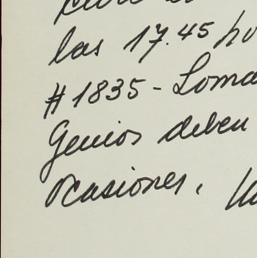 las 17.45 ho
#1835 - Loma
Genios deben
ocasiones.